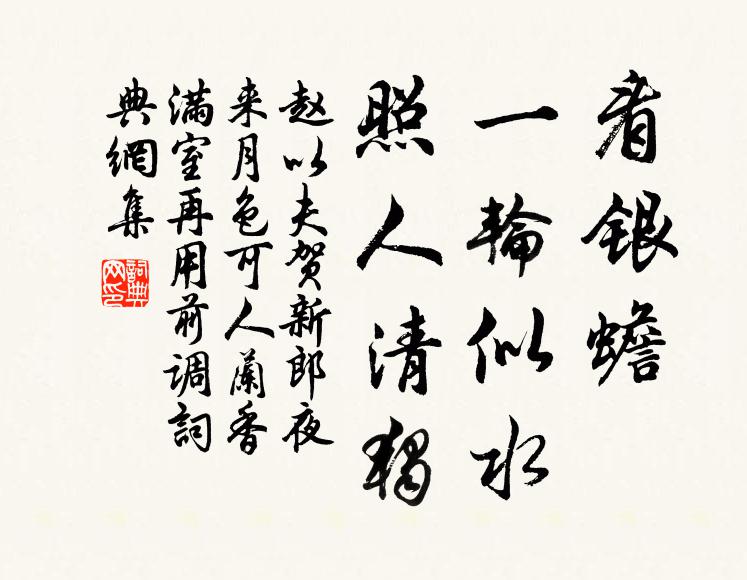 看銀蟾
一輪似水
照人清獨
赵以夫贺新郎夜
来月色可人蘭香
满室再用前调詞
典網集
詞典
网印